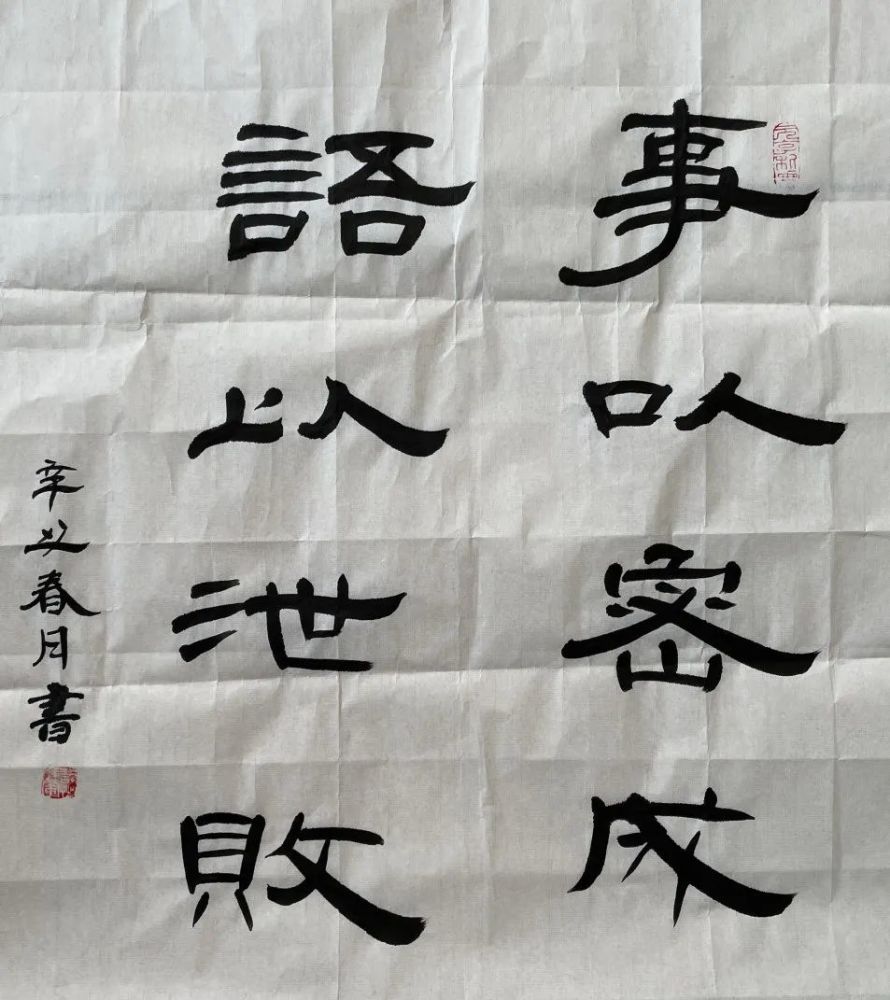 事以密成
語以泄敗
辛丑春月書